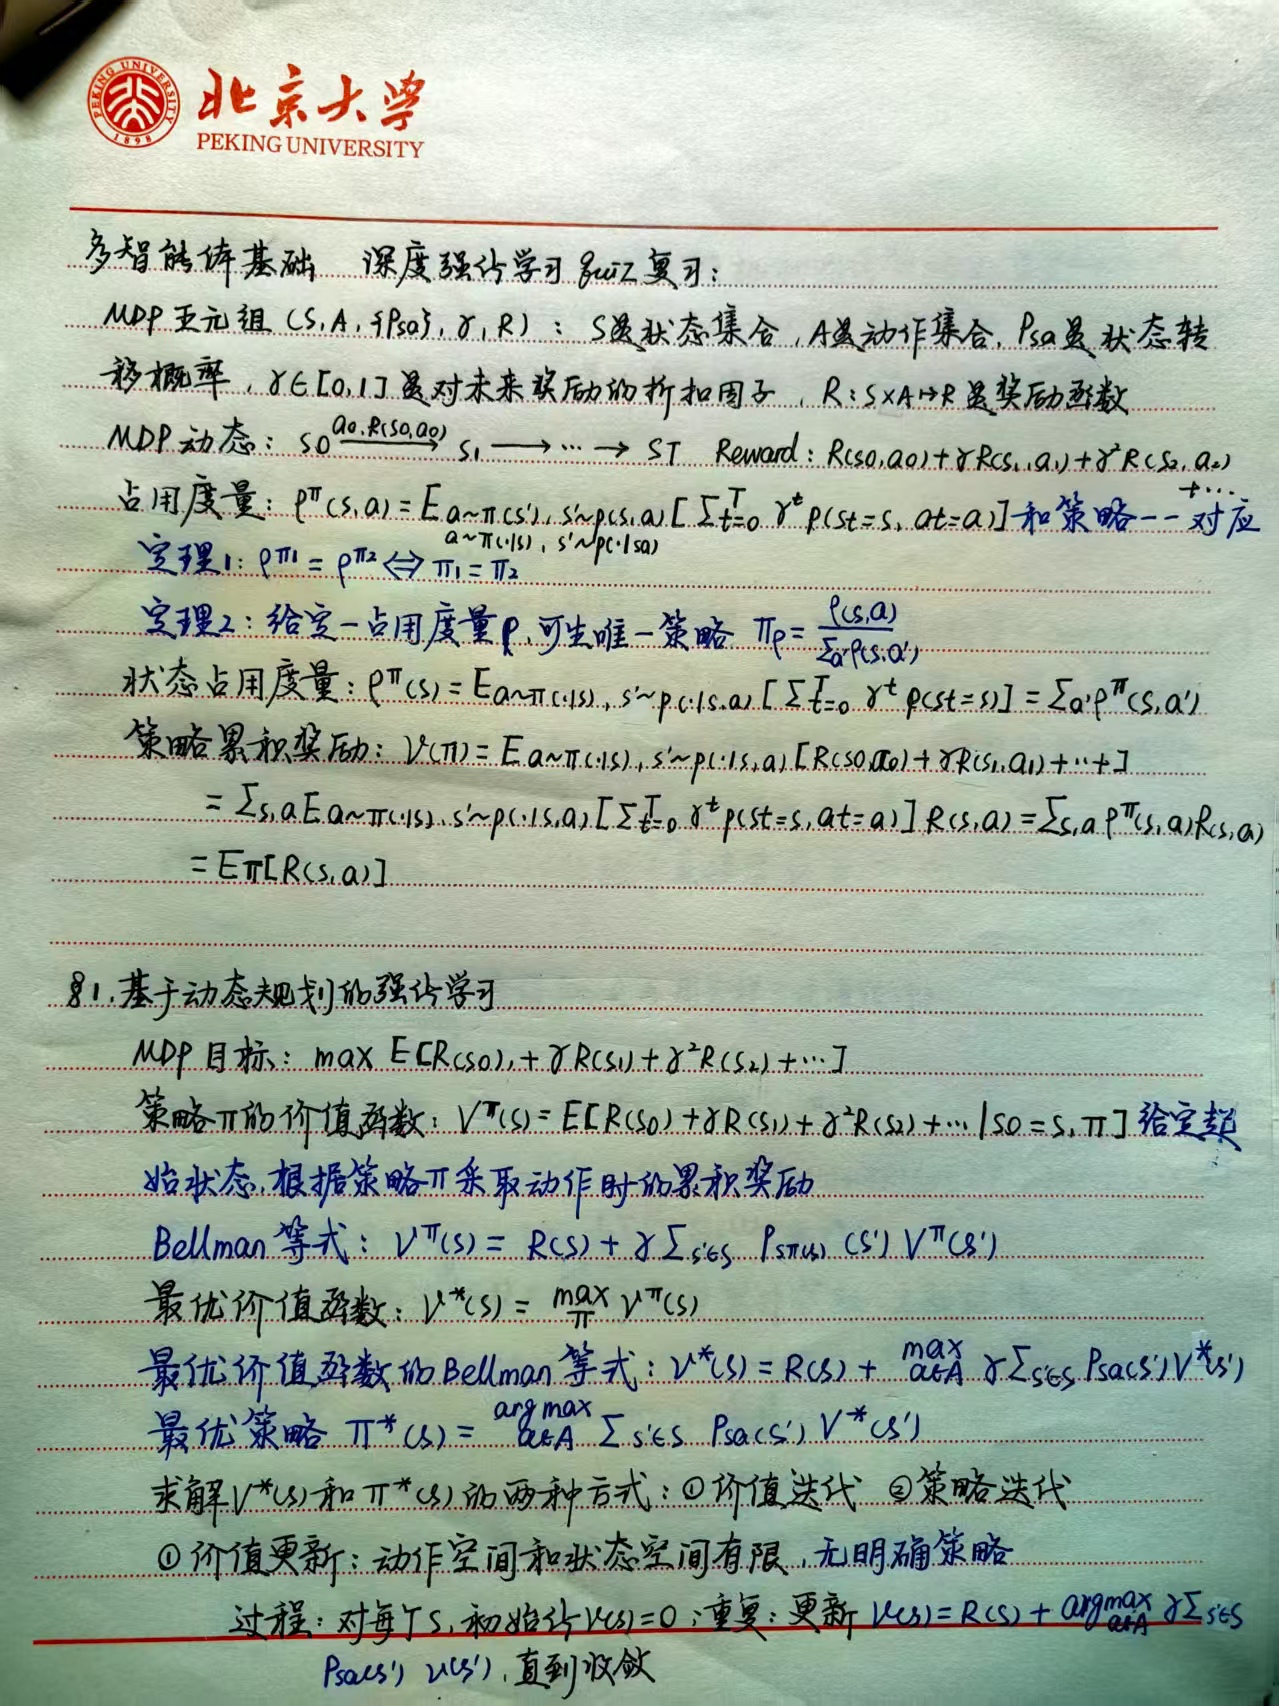 北京大学
PEKING UNIVERSITY
PEKING UNIVERSITY
1898
多智能体基础 深度强化学习 quiz 复习：
MDP 五元组 (S, A, {Psa}, γ, R)：S是状态集合, A是动作集合, Psa是状态转
移概率, γ∈[0,1]是对未来奖励的折扣因子, R: S×A↦R是奖励函数
MDP 动态：s0 —a0,R(s0,a0)→ s1 → ⋯ → sT Reward: R(s0,a0)+γR(s1,a1)+γ²R(s2,a2)
+⋯
占用度量：ρ^π(s,a) = E a~π(s'), s'~p(s,a) [Σ_{t=0}^T γ^t p(st=s, at=a)] 和策略一一对应
a~π(·|s), s'~p(·|sa)
定理1: ρ^π1 = ρ^π2 ⇔ π1 = π2
定理2：给定一占用度量ρ, 可生唯一策略 πρ = ρ(s,a)/Σa'ρ(s,a')
状态占用度量：ρ^π(s) = E a~π(·|s), s'~p(·|s,a) [Σ_{t=0}^T γ^t p(st=s)] = Σa'ρ^π(s,a')
策略累积奖励：V(π) = E a~π(·|s), s'~p(·|s,a) [R(s0,a0)+γR(s1,a1)+⋯+]
= Σs,a E a~π(·|s), s'~p(·|s,a) [Σ_{t=0}^T γ^t p(st=s, at=a)] R(s,a) = Σs,a ρ^π(s,a)R(s,a)
= Eπ[R(s,a)]
§1. 基于动态规划的强化学习
MDP 目标：max E[R(s0), + γR(s1) + γ²R(s2) + ⋯]
策略π的价值函数：V^π(s) = E[R(s0) + γR(s1) + γ²R(s2) + ⋯ | s0 = s, π] 给定起
始状态, 根据策略π采取动作时的累积奖励
Bellman 等式：V^π(s) = R(s) + γΣs'∈S Psπ(s) (s') V^π(s')
最优价值函数：V*(s) = max_π V^π(s)
最优价值函数的Bellman等式：V*(s) = R(s) + max_{a∈A} γΣs'∈S Psa(s')V*(s')
最优策略 π*(s) = argmax_{a∈A} Σs'∈S Psa(s') V*(s')
求解V*(s)和π*(s)的两种方式：①价值迭代 ②策略迭代
①价值更新：动作空间和状态空间有限, 无明确策略
过程：对每个s, 初始化V(s)=0；重复：更新 V(s) = R(s) + argmax_{a∈A} γΣs'∈S
Psa(s') V(s'), 直到收敛